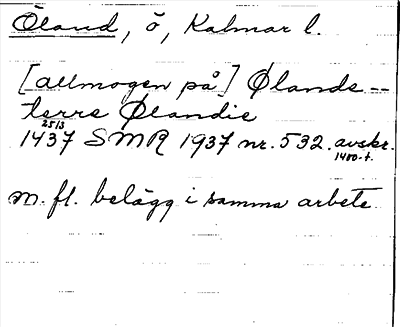 Öland, ö, Kalmar l.
[allmogen på] Ølands --
terre Ølandie
25/3
1437 SMR 1937 nr. 532. avskr.
1400-t.
m. fl. belägg i samma arbete